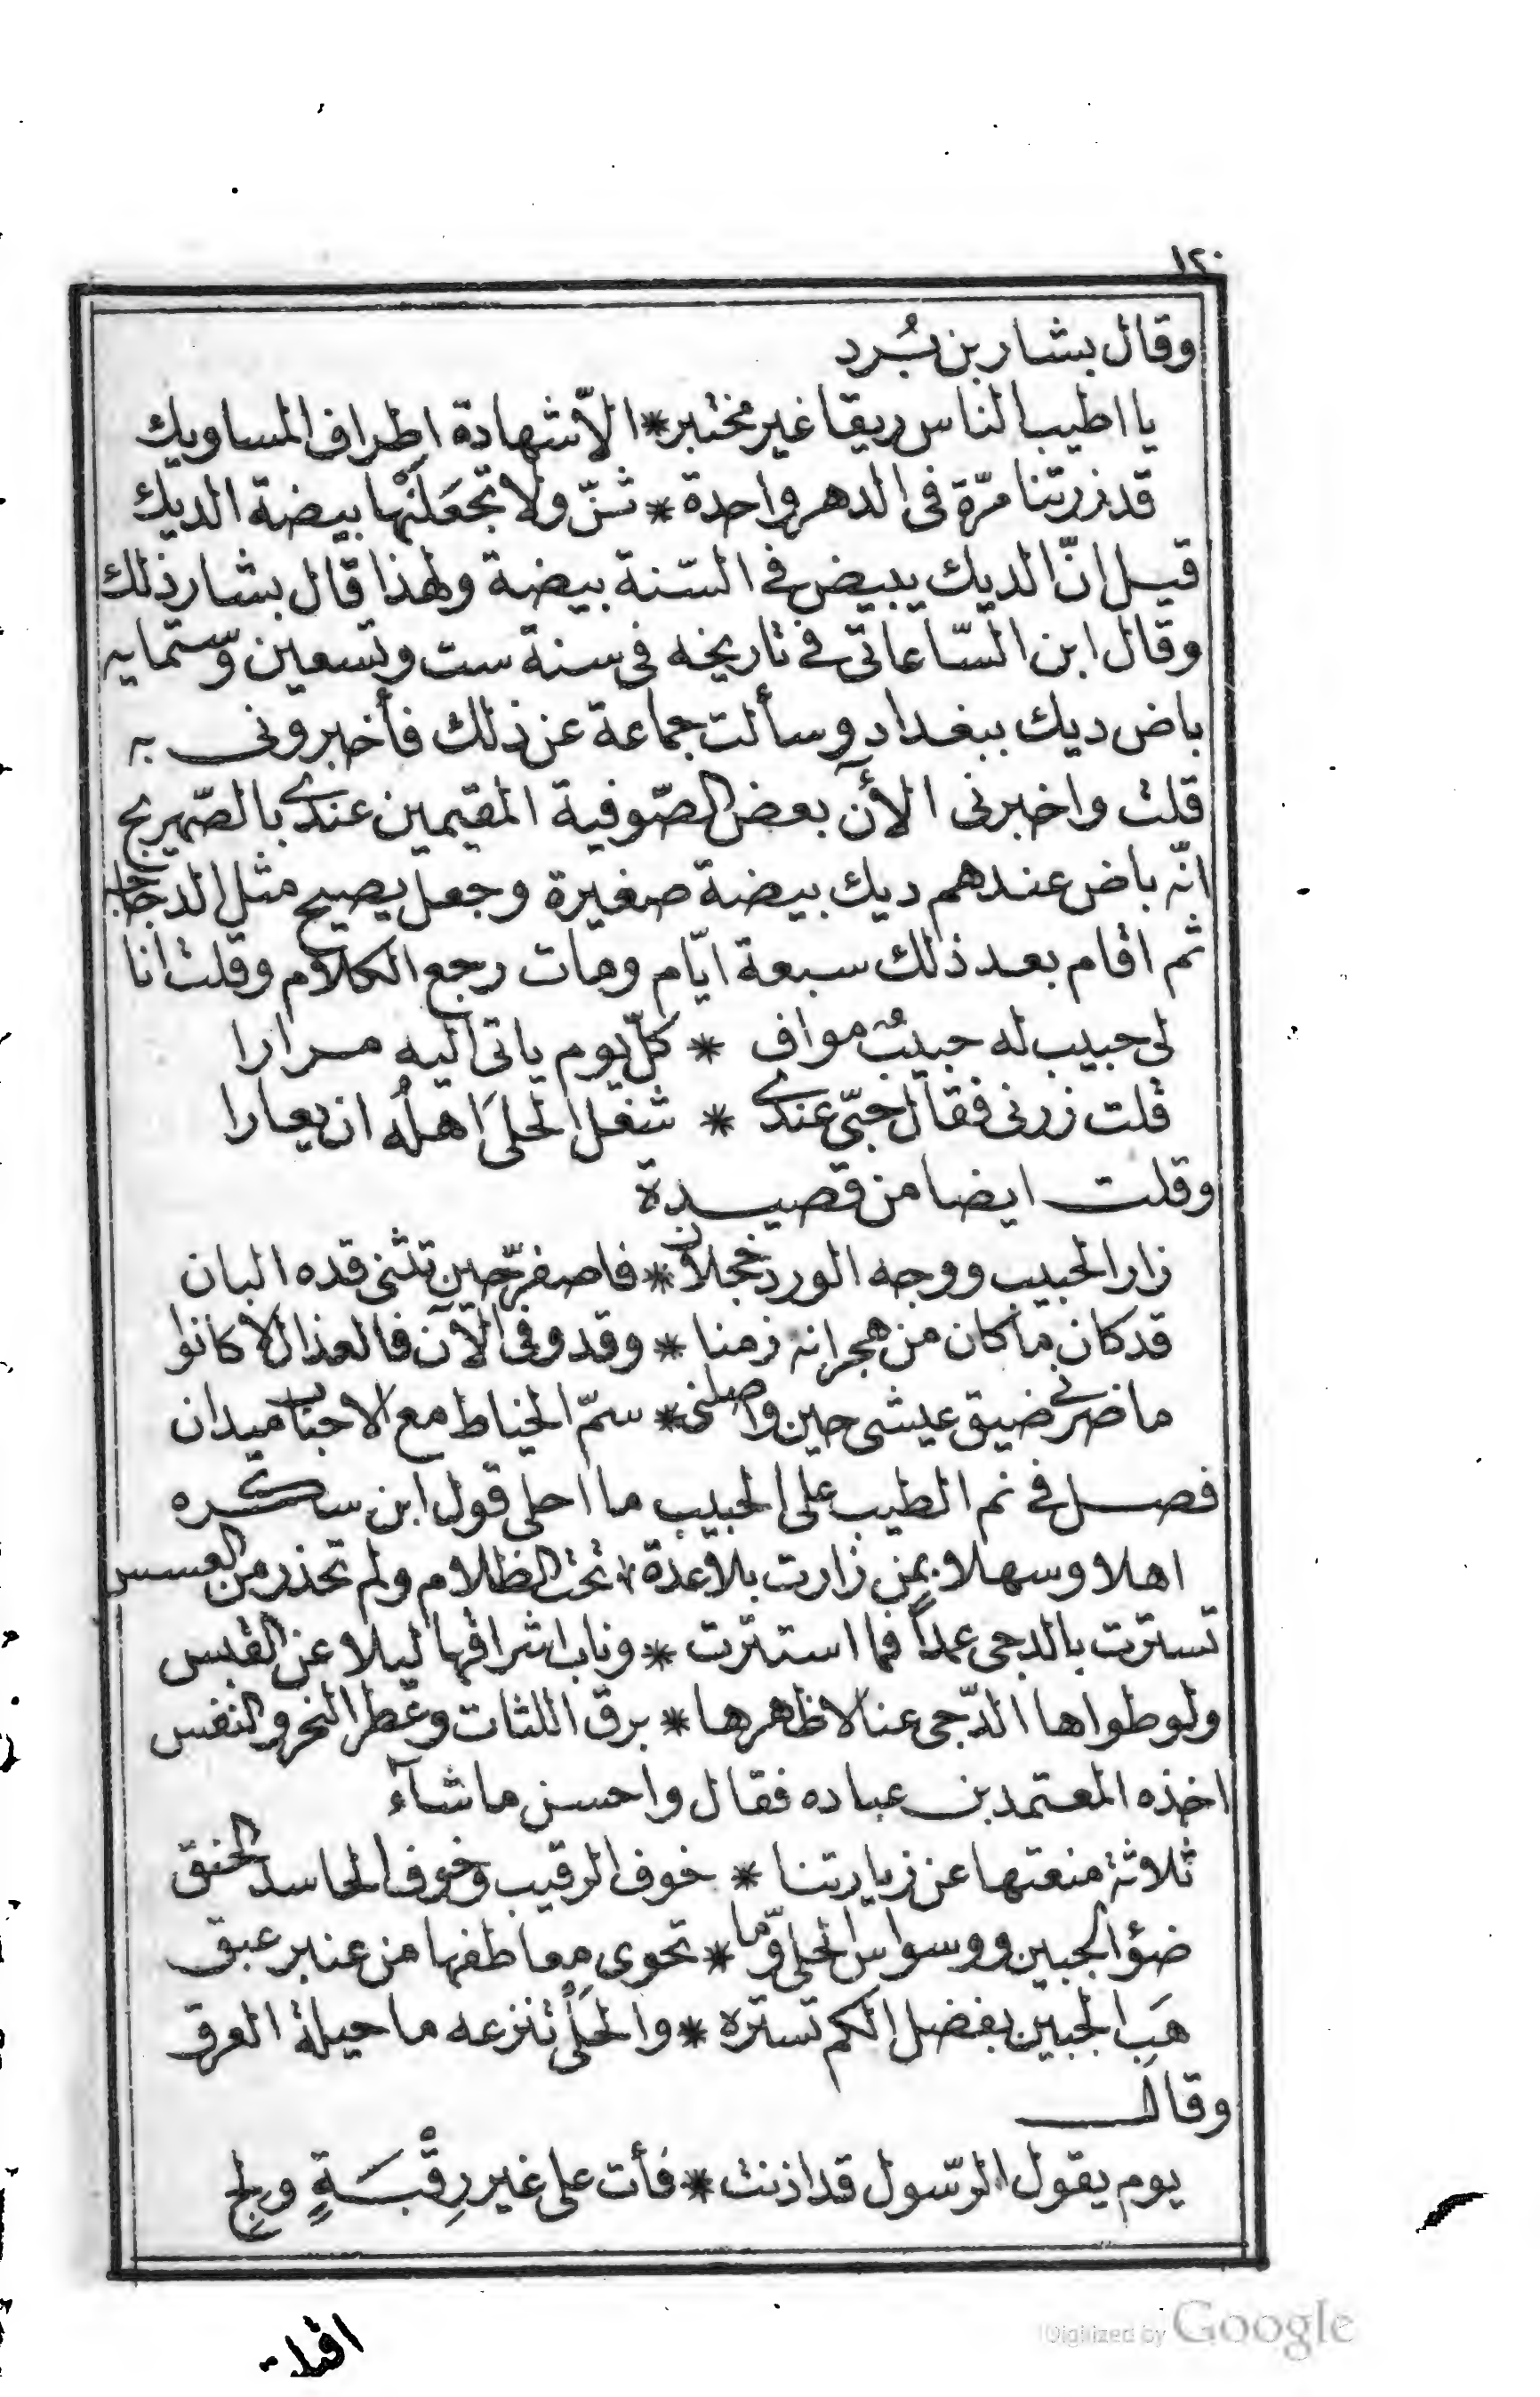 ١٢٠
وقال بشار بن بُرد
يا اطيب الناس ريقا غير مختبر * الّا شهادة اطراف المساويك
قد زرتنا مرّة فى الدهر واحدة * ثنّ ولا تجعَلَنْها بيضة الديك
قيل انّ الديك يبيض فى السّنة بيضة ولهذا قال بشار ذلك
وقال ابن السّاعاتى فى تاريخه فى سنة ست وتسعين وستمايه
باض ديك ببغداد وسألت جماعة عن ذلك فأخبرونى به
قلت واخبرنى الأن بعض الصّوفية المقيمين عندى بالصّهريج
انّه باض عندهم ديك بيضة صغيرة وجعل يصيح مثل الدجاجه
ثم اقام بعد ذلك سبعة ايّام ومات رجع الكلام وقلت انا
لى حبيب له حبيبٌ مواف * كلّ يوم ياتى اليه مرارا
قلت زرنى فقال حبّى عندى * شغل الحلىَ اهلُه ان يعارا
وقلت ايضا من قصيدة
زار الحبيب ووجه الورد خجلان * فاصفرّ حين تثنى قده البان
قد كان ما كان من هجرانه زمنا * وقد وفى الآن فالعذال لا كانوا
ما ضرنى ضيق عيشى حين واصلنى * سمّ الخياط مع الاحباب ميدان
فصل فى نم الطيب على الحبيب ما احلى قول ابن سكره
اهلا وسهلا بمن زارت بلا عدة * تحت الظلام ولم تحذر من العسس
تسترت بالدجى عمداً فما استترت * وناب اشراقها ليلا عن القبس
ولو طواها الدّجى عنا لاظهرها * برق اللثات وعطر النحر والنفس
اخذه المعتمد بن عباده فقال واحسن ما شآء
ثلاثة منعتها عن زيارتنا * خوف الرقيب وخوف الحاسد الحنق
ضؤ الجبين ووسواس الحلى وما * تحوى معاطفها من عنبر عبق
هَبِ الجبين بفضل الكم تستره * والحَلْىُ تنزعه ما حيلة العرق
وقال
يوم يقول الرّسول قد اذنت * فأت على غير رِقْبَةٍ ولِجِ